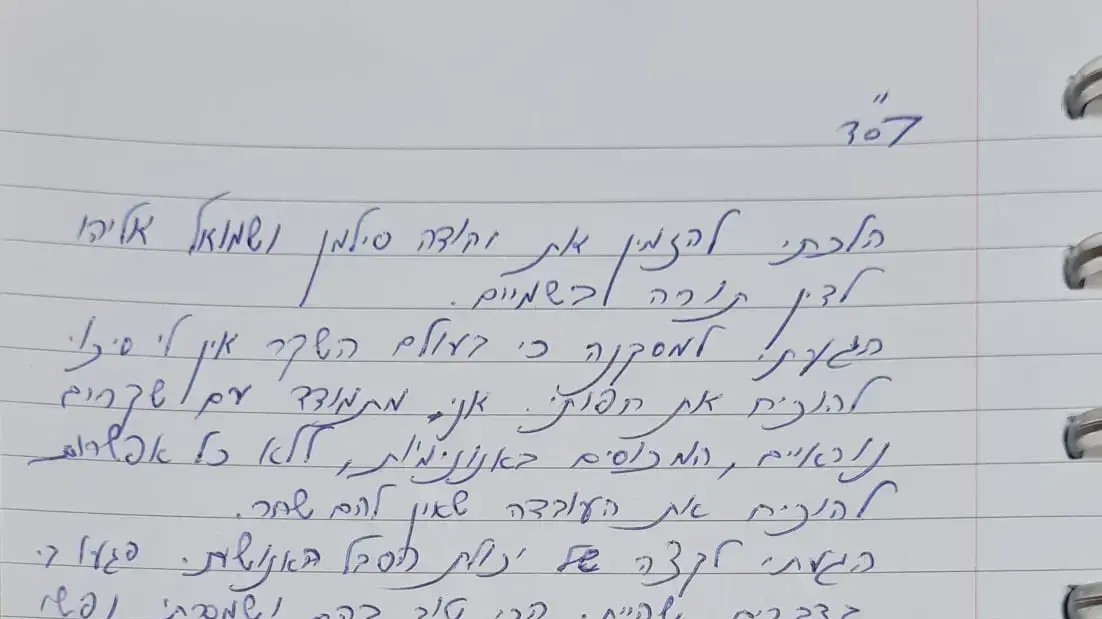 בס"ד
הלכתי להזמין את יהודה סילמן ושמואל אליהו
לדין תורה בשמיים.
הגעתי למסקנה כי בעולם השקר אין לי סיכוי
להוכיח את חפותי. אני מתמודד עם שקרים
נוראיים, המכוסים באנונימיות, ללא כל אפשרות
להוכיח את העובדה שאין להם שחר.
הגעתי לקצה של יכולת הסבל האנושית. פגעו בי
בדברים שהיית. הכי טוב בהם ושמסרתי נפשי